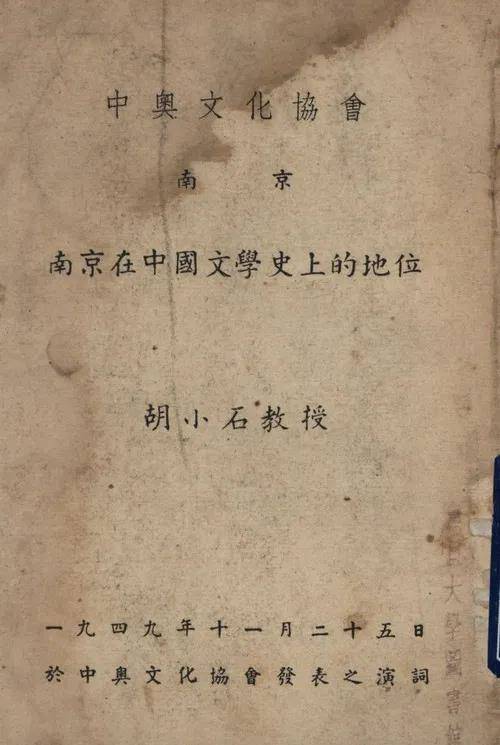 中奥文化協會
南京
南京在中國文學史上的地位
胡小石教授
一九四九年十一月二十五日
於中奥文化協會發表之演詞
大學圖書館